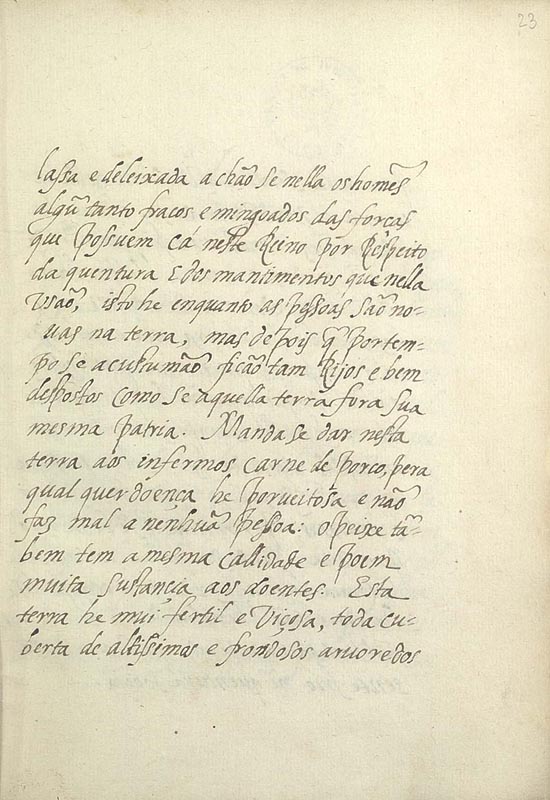 23
lassa e deleixada achaõ se nella os homẽs
algũ tanto fracos e minguados das forcas
que possuem cá neste Reino por Respeito
da quentura e dos mantimentos que nella
usaõ, isto he enquanto as pessoas saõ no-
uas na terra, mas depois q̃ por tem-
po se acustumaõ ficaõ tam Rijos e bem
despostos como se aquella terra fora sua
mesma patria. Manda se dar nesta
terra aos infermos carne de porco, pera
qual quer doença he porueitosa e naõ
faz mal a nenhuã pessoa: o peixe tã-
bem tem a mesma callidade e poem
muita sustançia aos doentes. Esta
terra he mui fertil e Viçosa, toda cu-
berta de altissimos e frondosos aruoredos